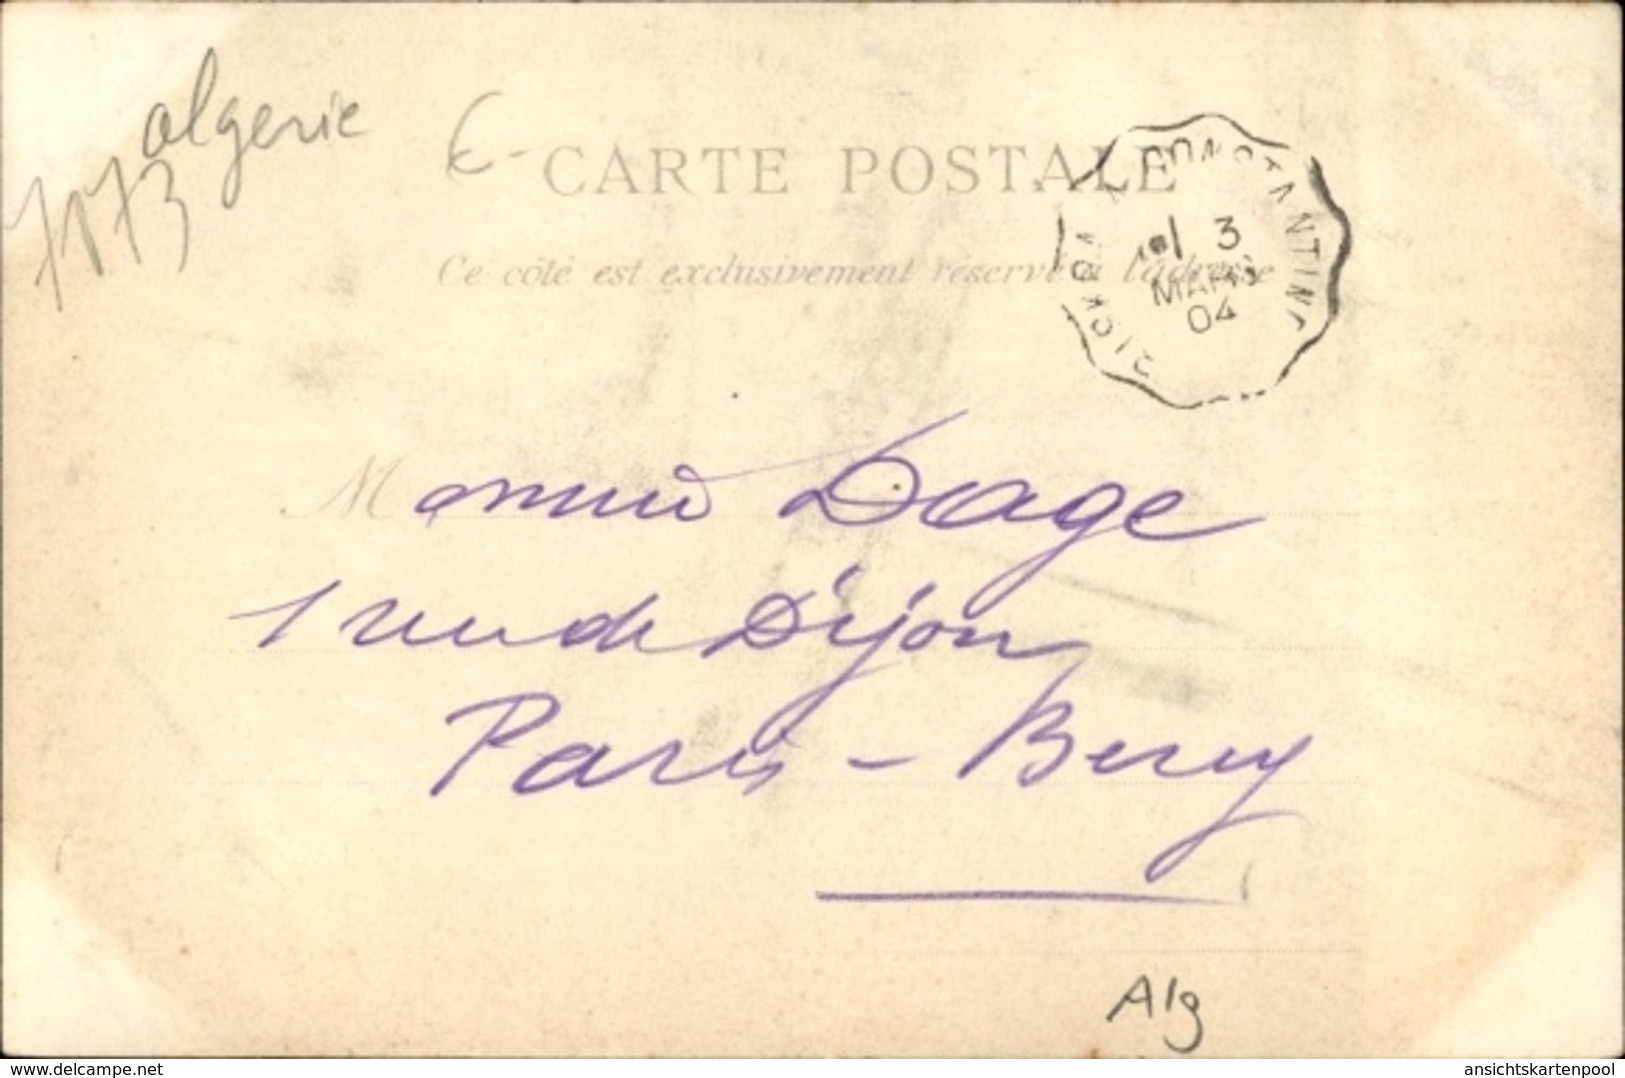 algerie
CARTE POSTALE
BISKRA A CONSTANTINE
3
MARS
04
Ce côté est exclusivement réservé à l'adresse
Monsieur Dage
1 rue de Dijon
Paris - Bercy
Alg
www.delcampe.net
ansichtskartenpool